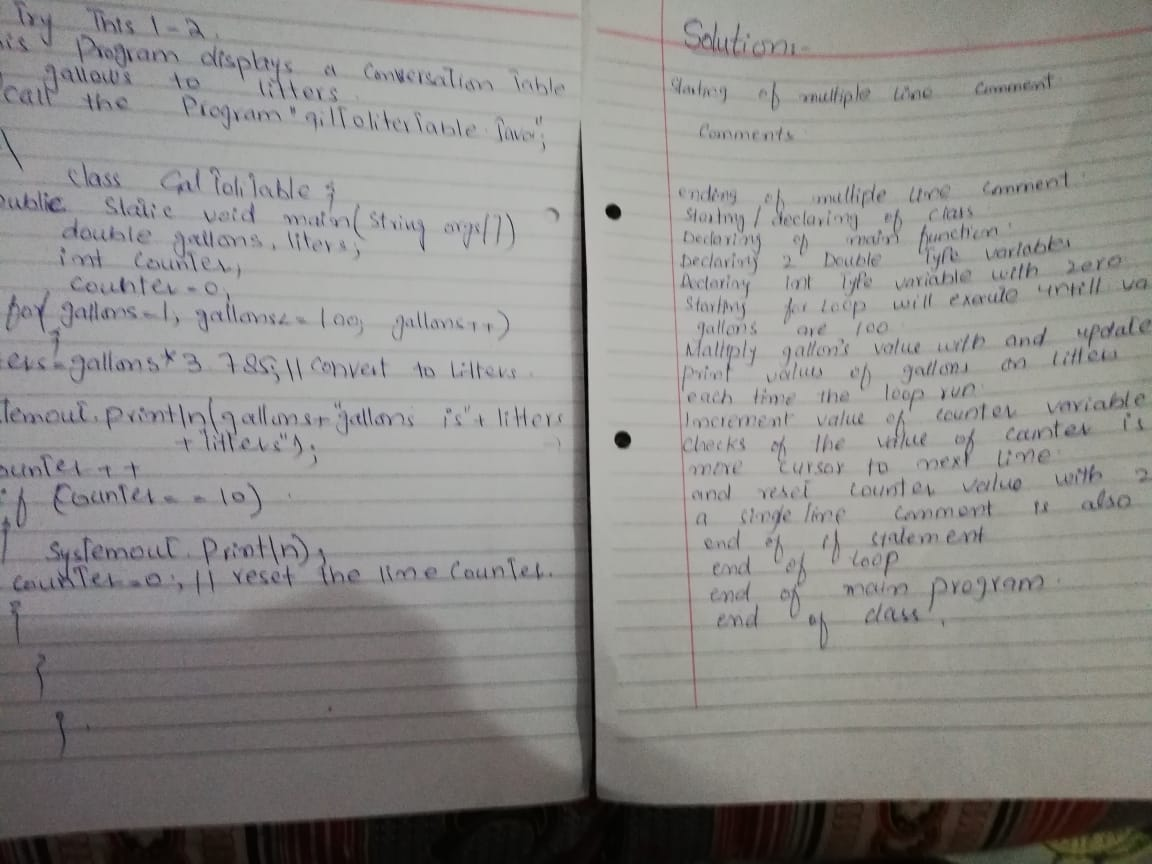 Try This 1-2.
is Program displays a Conversation Table
gallows to litters
call the Program "gilToliterTable.
class GalToliTable {
public Static void main(String args[])
double gallons, liters;
int counter;
counter=0;
for gallons=1; gallons<=100; gallons++)
{
ers=gallons*3.785; // convert to Litters.
temout.println(gallons+"gallons is"+litters
+"litters");
ounter++
if (counter==10)
Systemout.println);
counter=0; // reset the line counter.
}
}
}.
Solution:-
Starting of multiple line comment
Comments
ending of multiple line comment
Starting / declaring of class
Declaring of main function.
Declaring 2 Double Type variables
Declaring int Type variable with zero
Starting for Loop will execute untill va
gallons are 100
Maltiply gallon's value with and update
Print values of gallons on litters
each time the loop run.
Increment value of counter variable
Checks of the value of counter is
more cursor to next line.
and reset counter value with 2
a singe line comment is also
end of if statement
end of loop
end of main program.
end of class.